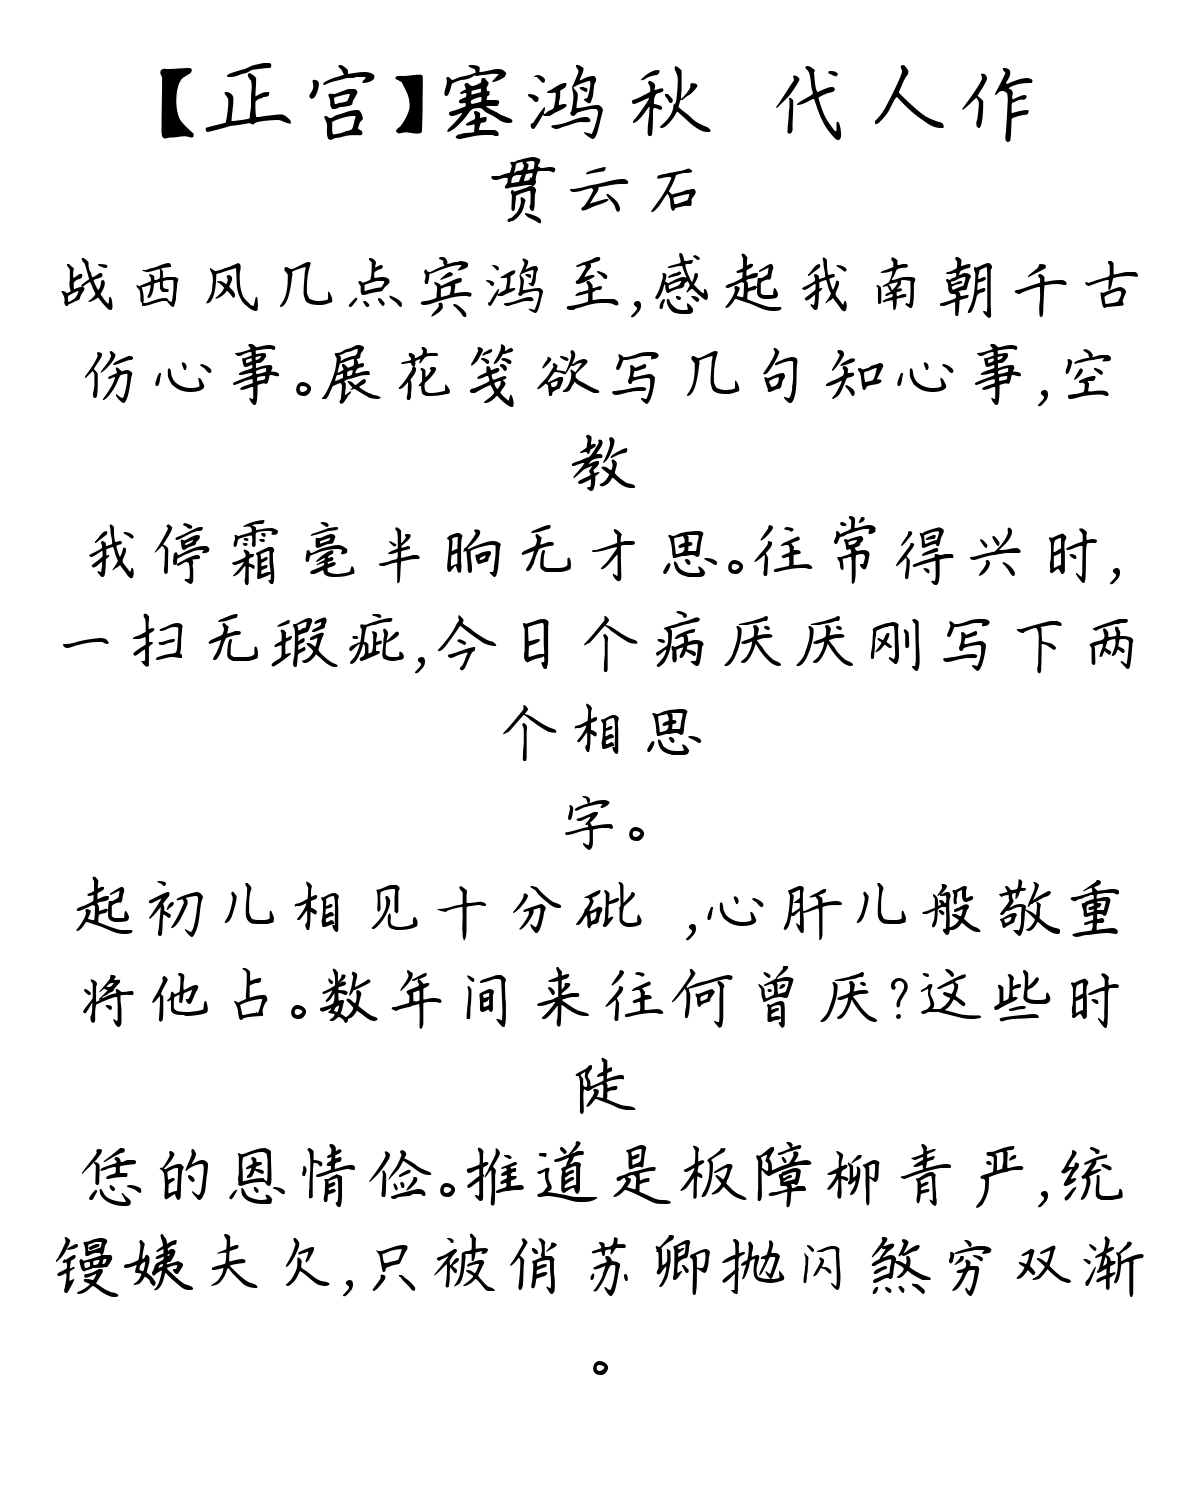 【正宫】塞鸿秋 代人作
贯云石
战西风几点宾鸿至,感起我南朝千古
伤心事。展花笺欲写几句知心事,空
教
我停霜毫半晌无才思。往常得兴时,
一扫无瑕疵,今日个病厌厌刚写下两
个相思
字。
起初儿相见十分砒 ,心肝儿般敬重
将他占。数年间来往何曾厌?这些时
陡
恁的恩情俭。推道是板障柳青严,统
镘姨夫欠,只被俏苏卿抛闪煞穷双渐
。